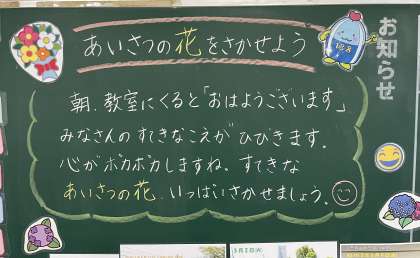 あいさつの花をさかせよう
お知らせ
朝、教室にくると「おはようございます」
みなさんのすてきなこえがひびきます。
心がポカポカしますね。すてきな
あいさつの花、いっぱいさかせましょう。